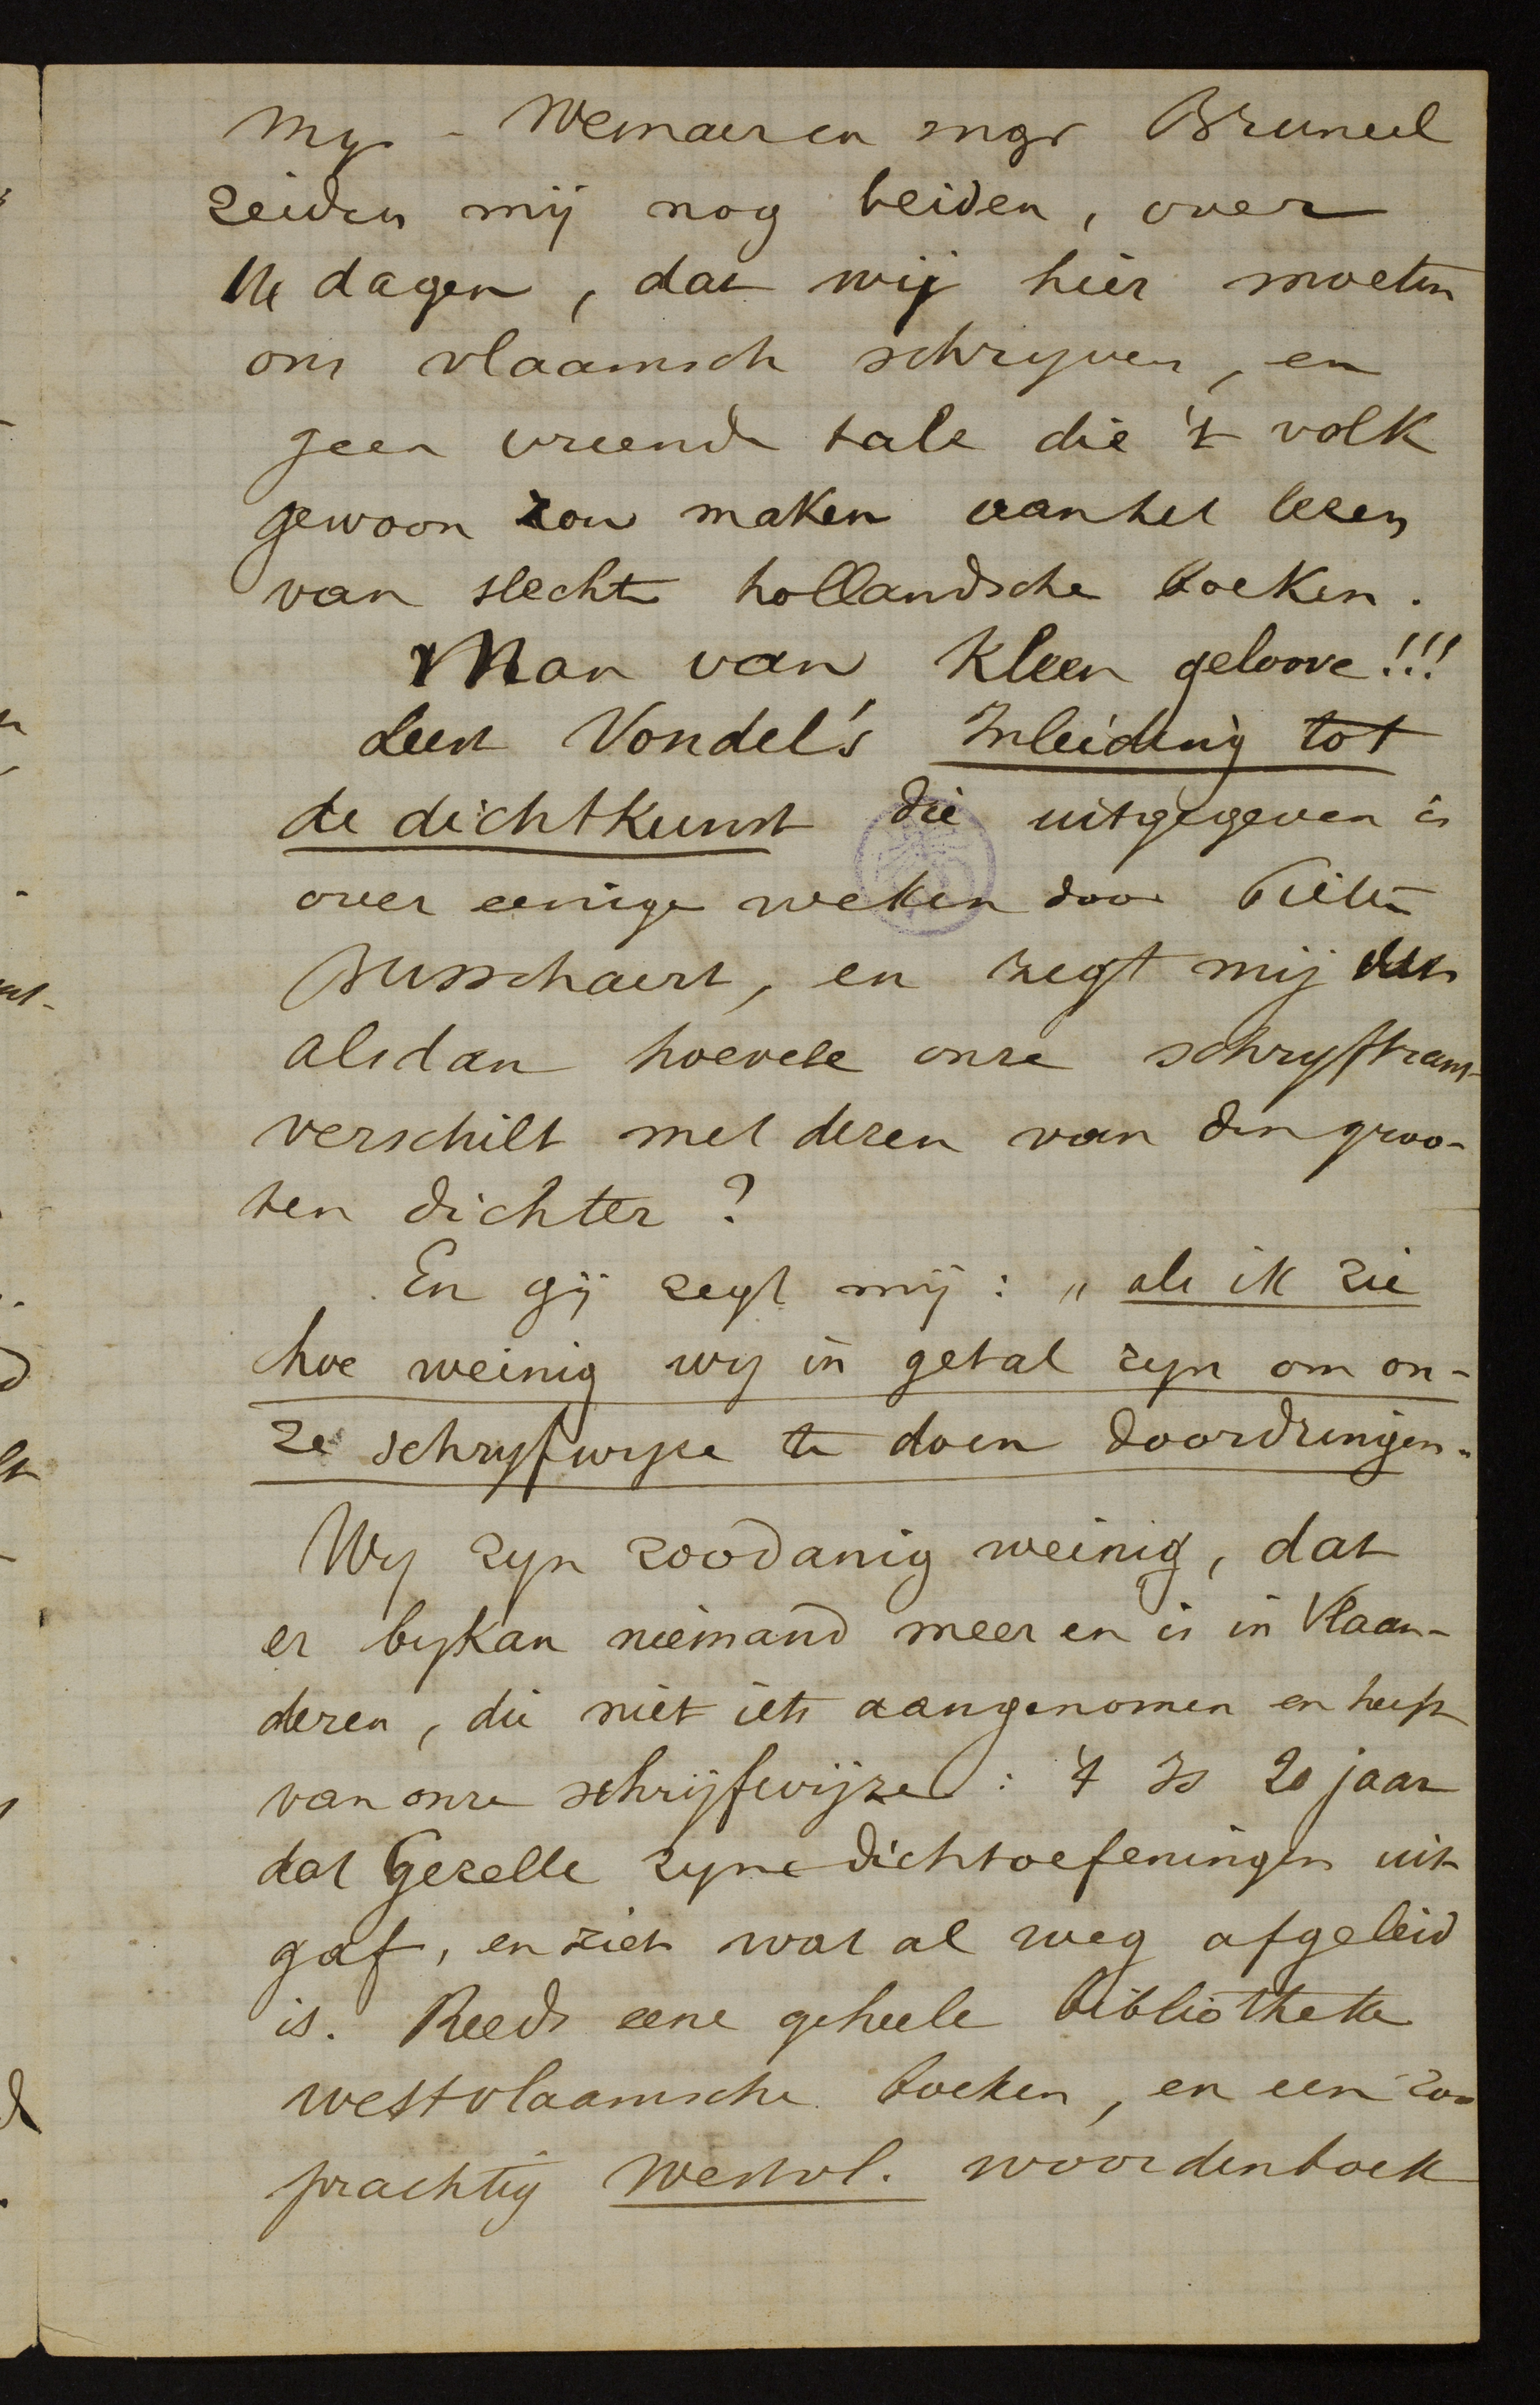 Mgr. Wemaer en mgr Bruneel
zeiden mij nog beiden, over
14 dagen, dat wij hier moeten
ons vlaamsch schryven, en
geen vreende tale die 't volk
gewoon zou maken aan het lesen
van slechte hollandsche boeken.
Man van kleen geloove!!!
Leest Vondel's Inleiding tot
de dichtkunst die uitgegeven is
over eenige weken door
Busschaert, en zegt mij
alsdan hoevele onze schryftrant
verschilt met dezen van den groo-
ten dichter?
En gij zegt mij: „als ik zie
hoe weinig wy in getal zyn om on-
ze schryfwyze te doen doordringen."
Wy zyn zoodanig weinig, dat
er bykan niemand meer en is in Vlaan-
deren, die niet iets aangenomen en heeft
van onze schrijfwijze: 't Is 20 jaar
dat Gezelle zyne dichtoefeningen uit
gaf, en ziet wat al weg afgeleid
is. Reeds eene geheele bibliotheke
westvlaamsche boeken, en een zoo
prachtig Westvl. woordenboek